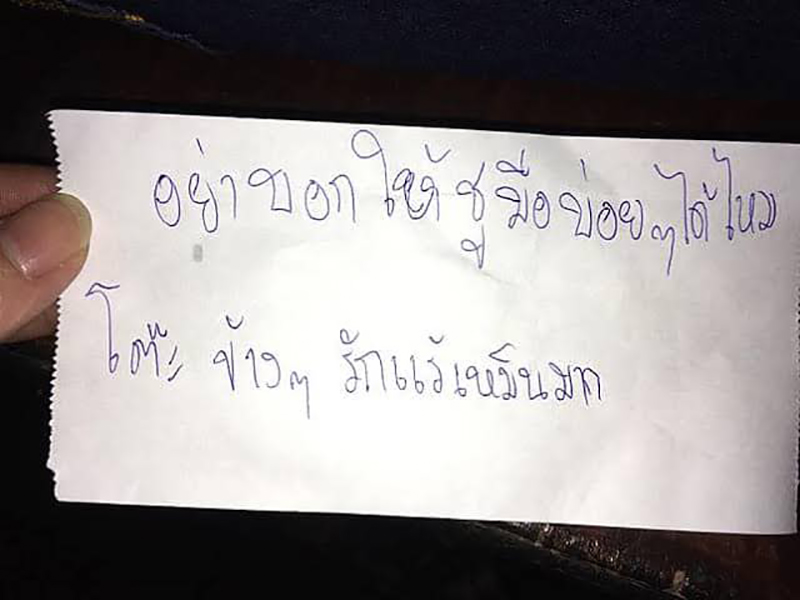 อย่าบอกให้ชูมือบ่อยๆได้ไหม
โต๊ะ ข้างๆ รักแร้เหม็นมาก